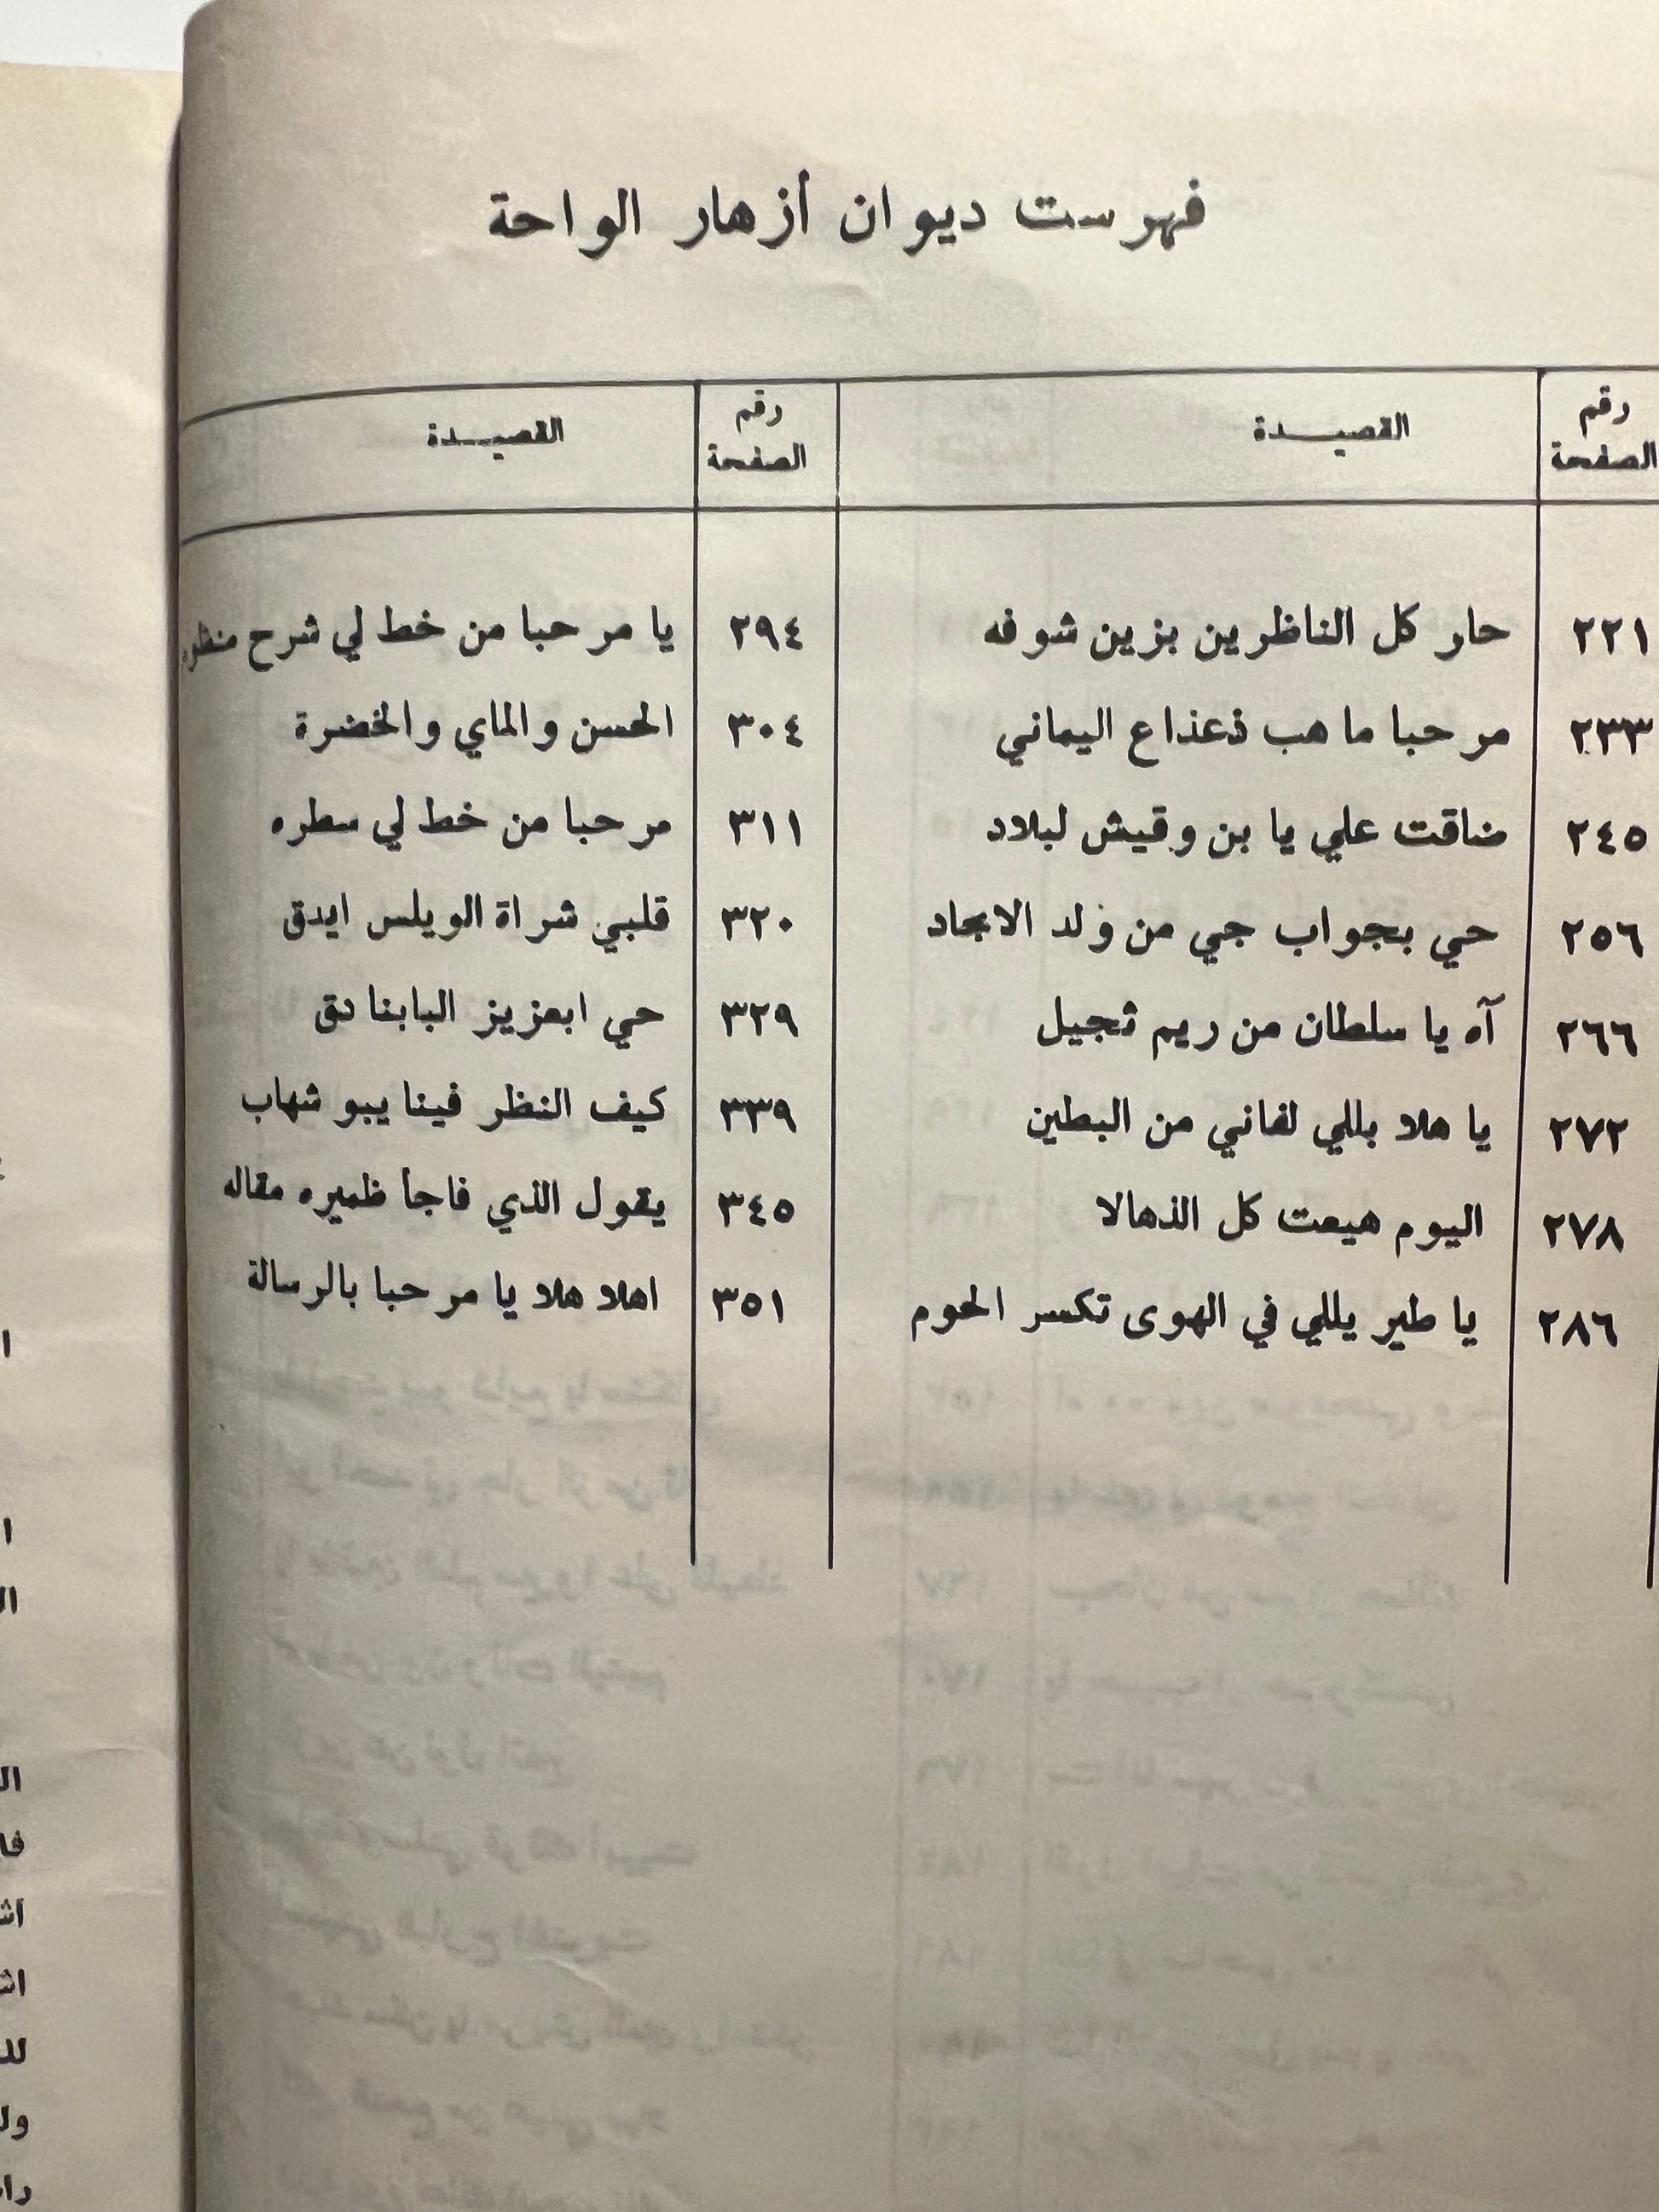 فهرست ديوان أزهار الواحة
رقم الصفحة القصيدة رقم الصفحة القصيدة
٢٢١ حار كل الناظرين بزين شوفه
٢٣٣ مرحبا ما هب ذعذاع اليماني
٢٤٥ ضاقت علي يا بن وقيش لبلاد
٢٥٦ حي بجواب جي من ولد الاجاد
٢٦٦ آه يا سلطان من ريم ثجيل
٢٧٢ يا هلا بللي لفاني من البطين
٢٧٨ اليوم هيعت كل الذهالا
٢٨٦ يا طير يللي في الهوى تكسر الحوم
٢٩٤ يا مرحبا من خط لي شرح
٣٠٤ الحسن والماي والخضرة
٣١١ مرحبا من خط لي سطره
٣٢٠ قلبي شراة الويلس ايدق
٣٢٩ حي ابعزيز البابنادق
٣٣٩ كيف النظر فينا يبو شهاب
٣٤٥ يقول الذي فاجا ظميره مقاله
٣٥١ اهلا هلا يا مرحبا بالرسالة